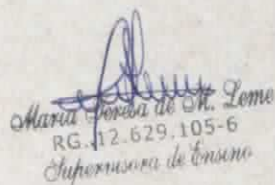 Maria Teresa de M. Leme
RG. 12.629.105-6
Supervisora de Ensino